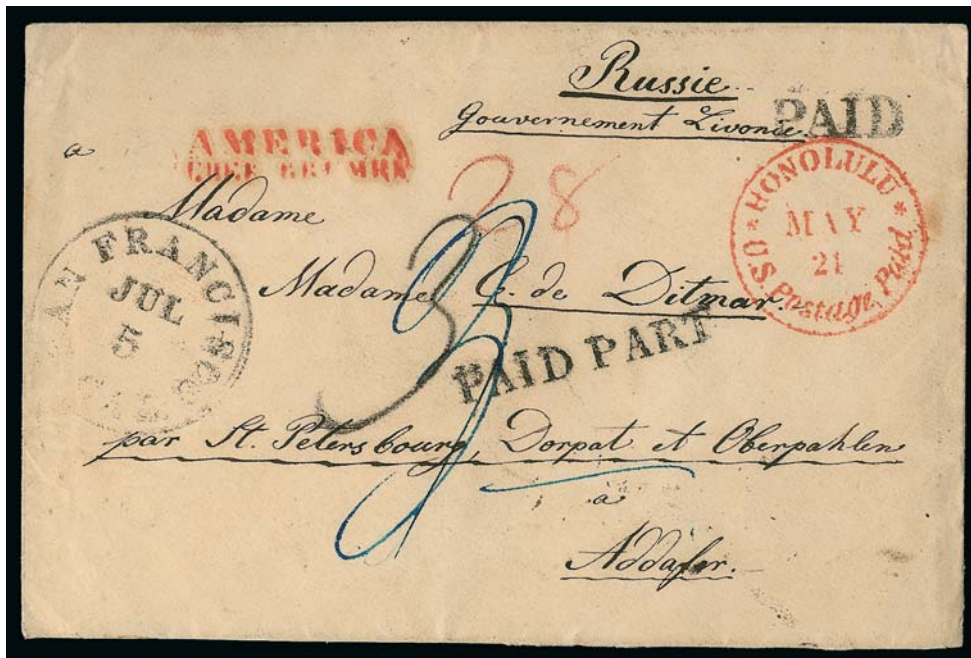 Russie
Gouvernement Livonie
PAID
a
AMERICA
ÜBER BREMEN
28
HONOLULU
MAY
21
US Postage Paid
Madame
SAN FRANCISCO
JUL
5
Madame C. de Ditmar.
3
PAID PART
par St. Petersbourg, Dorpat et Oberpahlen
a
Addafer.